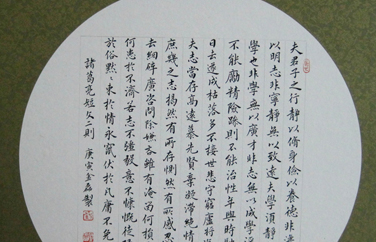 夫君子之行靜以脩身儉以養德非
以明志非寧靜無以致遠夫學湏靜
學也非學無以廣才非志無以成學
不能勵精險躁則不能治性年與時
日去遂成枯落多不接世悲守窮廬將
夫志當存高遠慕先賢棄凝滯絶情
庶幾之志揭然有所存惻然有所感
去細碎廣咨問除嫌吝雖有淹留何損
何患於不濟若志不強毅意不慷慨徒
於俗默、束於情永竄伏於凡庸不免
諸葛亮短文二則 庚寅 製